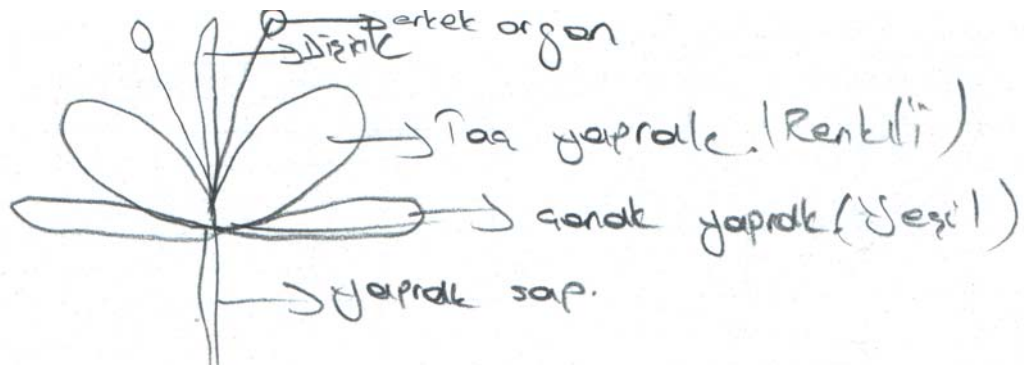 erkek organ
Dişik
Taç yaprak. (Renkli)
Çanak yaprak (Yeşil)
yaprak sap.